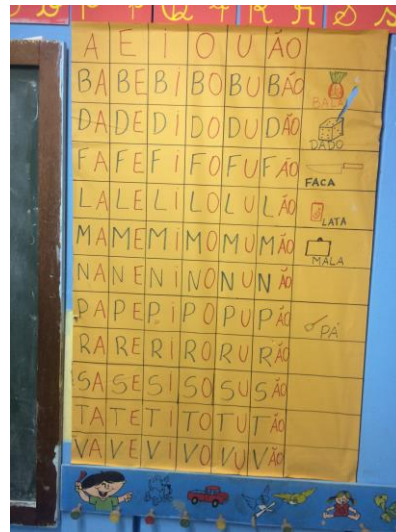 A E i O U ÃO
BA BE BI BO BU BÃO BALA
DA DE DI DO DU DÃO DADO
FA FE FI FO FU FÃO FACA
LA LE LI LO LU LÃO LATA
MA ME Mi MO MU MÃO MALA
NA NE Ni NO NU NÃO
PA PE Pi PO PU PÃO PÁ
RA RE RI RO RU RÃO
SA SE SI SO SU SÃO
TA TE TI TO TU TÃO
VA VE VI VO VU VÃO